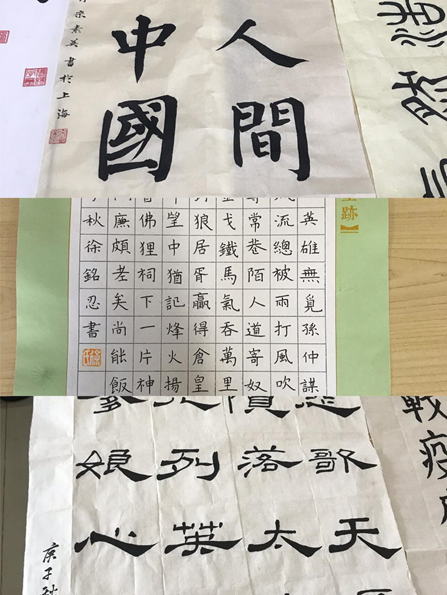 人間
中國
宋素英書於上海
跡
英雄無覓孫仲謀
流總被雨打風吹
常巷陌人道寄奴
戈鐵馬氣吞萬里
狼居胥贏得倉皇
望中猶記烽火揚
佛狸祠下一片神
廉頗老矣尚能飯
秋徐銘忍書
戰疫
歌天
落太
列英
娘心
庚子秋